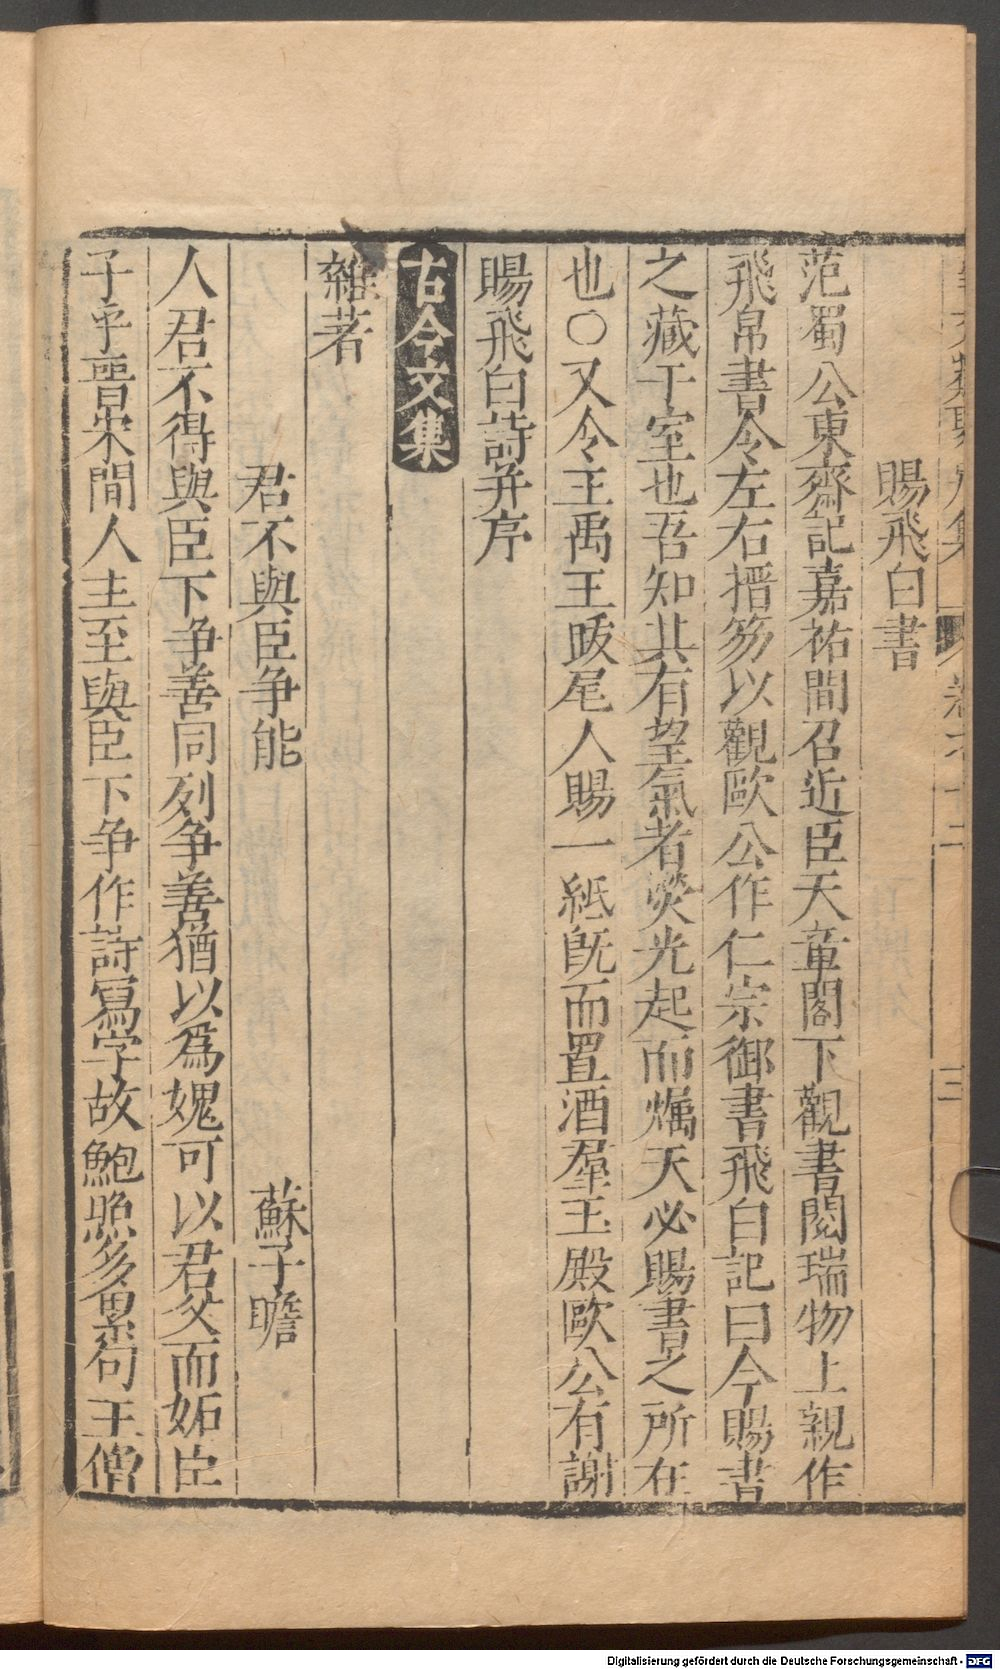 賜飛白書
范蜀公東齋記嘉祐間召近臣天章閣下觀書閱瑞物上親作
飛帛書令左右搢笏以觀歐公作仁宗御書飛白記曰今賜書
之藏于室也吾知其有望氣者熒光起而燭天必賜書之所在
也〇又令王禹王跋尾人賜一紙旣而置酒羣玉殿歐公有謝
賜飛白詩并序
古今文集
雜著
君不與臣争能 蘇子瞻
人君不得與臣下争善同列争善猶以爲媿可以君父而妬臣
子乎晋宋間人主至與臣下争作詩寫字故鮑照多累句王僧
Digitalisierung gefördert durch die Deutsche Forschungsgemeinschaft - DFG